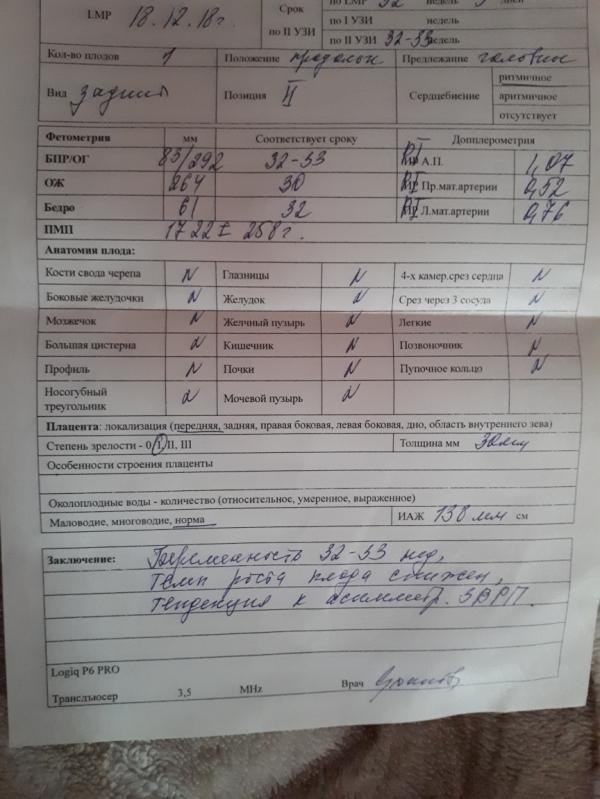 LMP 18.12.18г. Срок по LMP 32 недель 3 дней
по I УЗИ недель
по II УЗИ по II УЗИ 32-33 недель
Кол-во плодов 1 Положение продольн Предлежание головное
Вид задний Позиция II Сердцебиение ритмичное
аритмичное
отсутствует
Фетометрия мм Соответствует сроку Допплерометрия
БПР/ОГ 83/292 32-33 А.П. 1,07
ОЖ 264 30 RI Пр.мат.артерии 0,52
Бедро 61 32 RI Л.мат.артерии 0,76
ПМП 1722 ± 258г.
Анатомия плода:
Кости свода черепа N Глазницы N 4-х камер.срез сердца N
Боковые желудочки N Желудок N Срез через 3 сосуда N
Мозжечок N Желчный пузырь N Легкие N
Большая цистерна N Кишечник N Позвоночник N
Профиль N Почки N Пупочное кольцо N
Носогубный треугольник N Мочевой пузырь N
Плацента: локализация (передняя, задняя, правая боковая, левая боковая, дно, область внутреннего зева)
Степень зрелости - 0, I, II, III Толщина мм 30мм
Особенности строения плаценты
Околоплодные воды - количество (относительное, умеренное, выраженное)
Маловодие, многоводие, норма ИАЖ 138 мм см
Заключение: Беременность 32-33 нед,
темп роста плода снижен,
тенденция к асимметр. ЗВРП.
Logiq P6 PRO
Трансдъюсер 3,5 MHz Врач